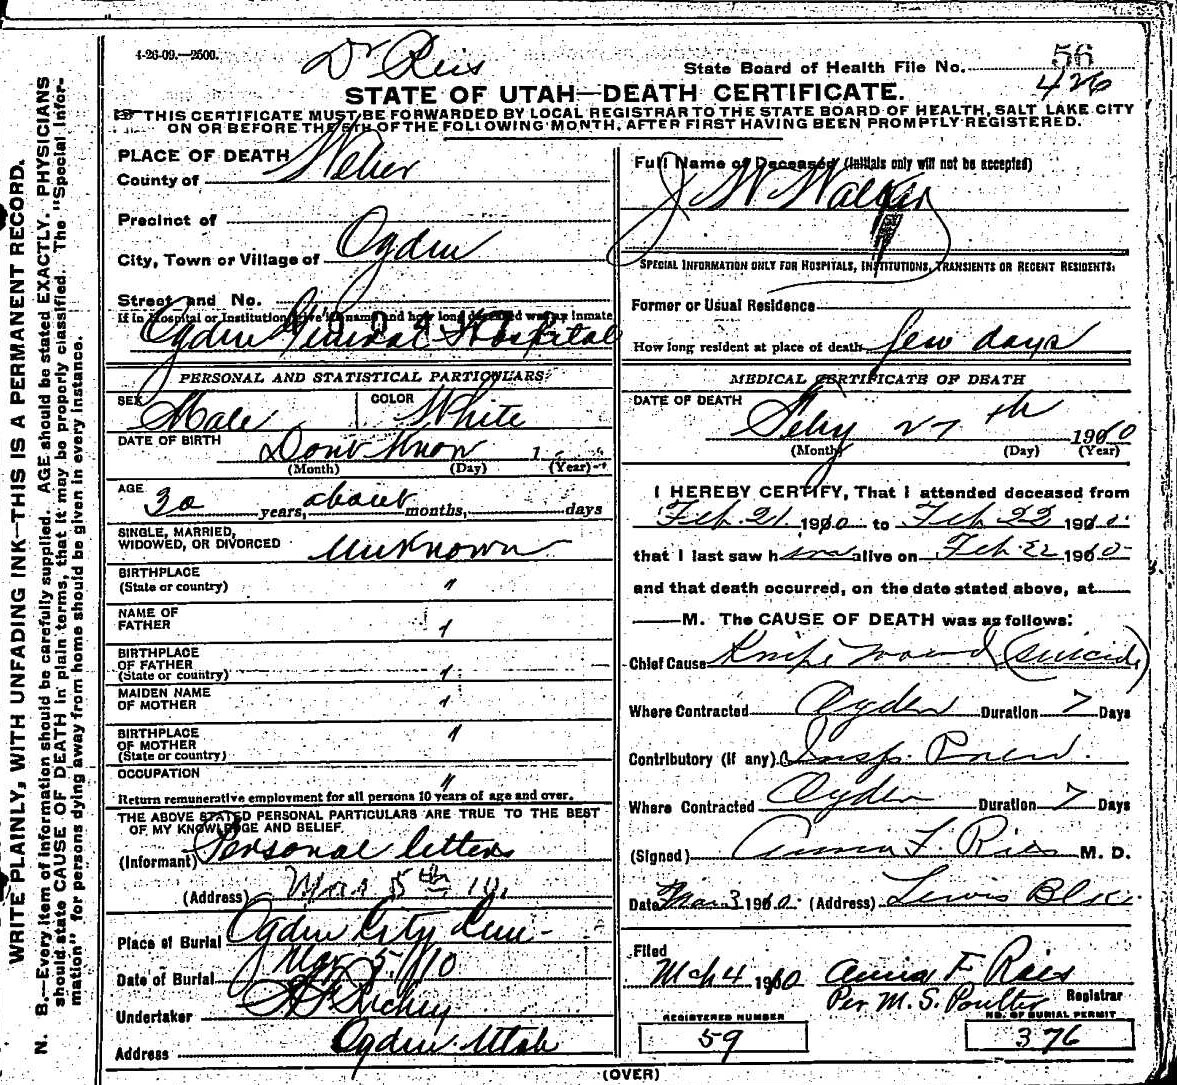 4-26-09.—2500.
Dr Reis
56
State Board of Health File No.
426
STATE OF UTAH—DEATH CERTIFICATE.
THIS CERTIFICATE MUST BE FORWARDED BY LOCAL REGISTRAR TO THE STATE BOARD OF HEALTH, SALT LAKE CITY
ON OR BEFORE THE 5TH OF THE FOLLOWING MONTH, AFTER FIRST HAVING BEEN PROMPTLY REGISTERED.
PLACE OF DEATH
County of Weber
Precinct of
City, Town or Village of Ogden
Street and No.
If in Hospital or Institution, give its name, and how long deceased was an inmate
Ogden General Hospital
PERSONAL AND STATISTICAL PARTICULARS
SEX Male
COLOR White
DATE OF BIRTH Dont Know 1
(Month) (Day) (Year)
AGE 30 years, about months, days
SINGLE, MARRIED,
WIDOWED, OR DIVORCED Unknown
BIRTHPLACE
(State or country) "
NAME OF
FATHER "
BIRTHPLACE
OF FATHER
(State or country) "
MAIDEN NAME
OF MOTHER "
BIRTHPLACE
OF MOTHER
(State or country) "
OCCUPATION "
Return remunerative employment for all persons 10 years of age and over.
THE ABOVE STATED PERSONAL PARTICULARS ARE TRUE TO THE BEST
OF MY KNOWLEDGE AND BELIEF.
(Informant) Personal letters
(Address) Mar 5th 10.
Place of Burial Ogden City Cem-
Date of Burial Mar 5/10
Undertaker Richey
Address Ogden Utah
Full Name of Deceased (Initials only will not be accepted)
J W Walker
SPECIAL INFORMATION ONLY FOR HOSPITALS, INSTITUTIONS, TRANSIENTS OR RECENT RESIDENTS.
Former or Usual Residence
How long resident at place of death few days
MEDICAL CERTIFICATE OF DEATH
DATE OF DEATH
Feby 27th 1910
(Month) (Day) (Year)
I HEREBY CERTIFY, That I attended deceased from
Feb. 21 1910 to Feb 22 1910
that I last saw him alive on Feb. 22 1910
and that death occurred, on the date stated above, at
M. The CAUSE OF DEATH was as follows:
Chief Cause Knife wound (suicide)
Where Contracted Ogden Duration 7 Days
Contributory (if any)
Where Contracted Ogden Duration 7 Days
(Signed) Anna F. Ries M. D.
Date Mar 3 1910 (Address) Lewis Blk
Filed
Mch 4 1910 Anna F Ries
Per M. S. Poulter Registrar
REGISTERED NUMBER
59
NO. OF BURIAL PERMIT
376
(OVER)
WRITE PLAINLY, WITH UNFADING INK—THIS IS A PERMANENT RECORD.
N. B.—Every item of information should be carefully supplied. AGE should be stated EXACTLY. PHYSICIANS
should state CAUSE OF DEATH in plain terms, that it may be properly classified. The "Special Infor-
mation" for persons dying away from home should be given in every instance.